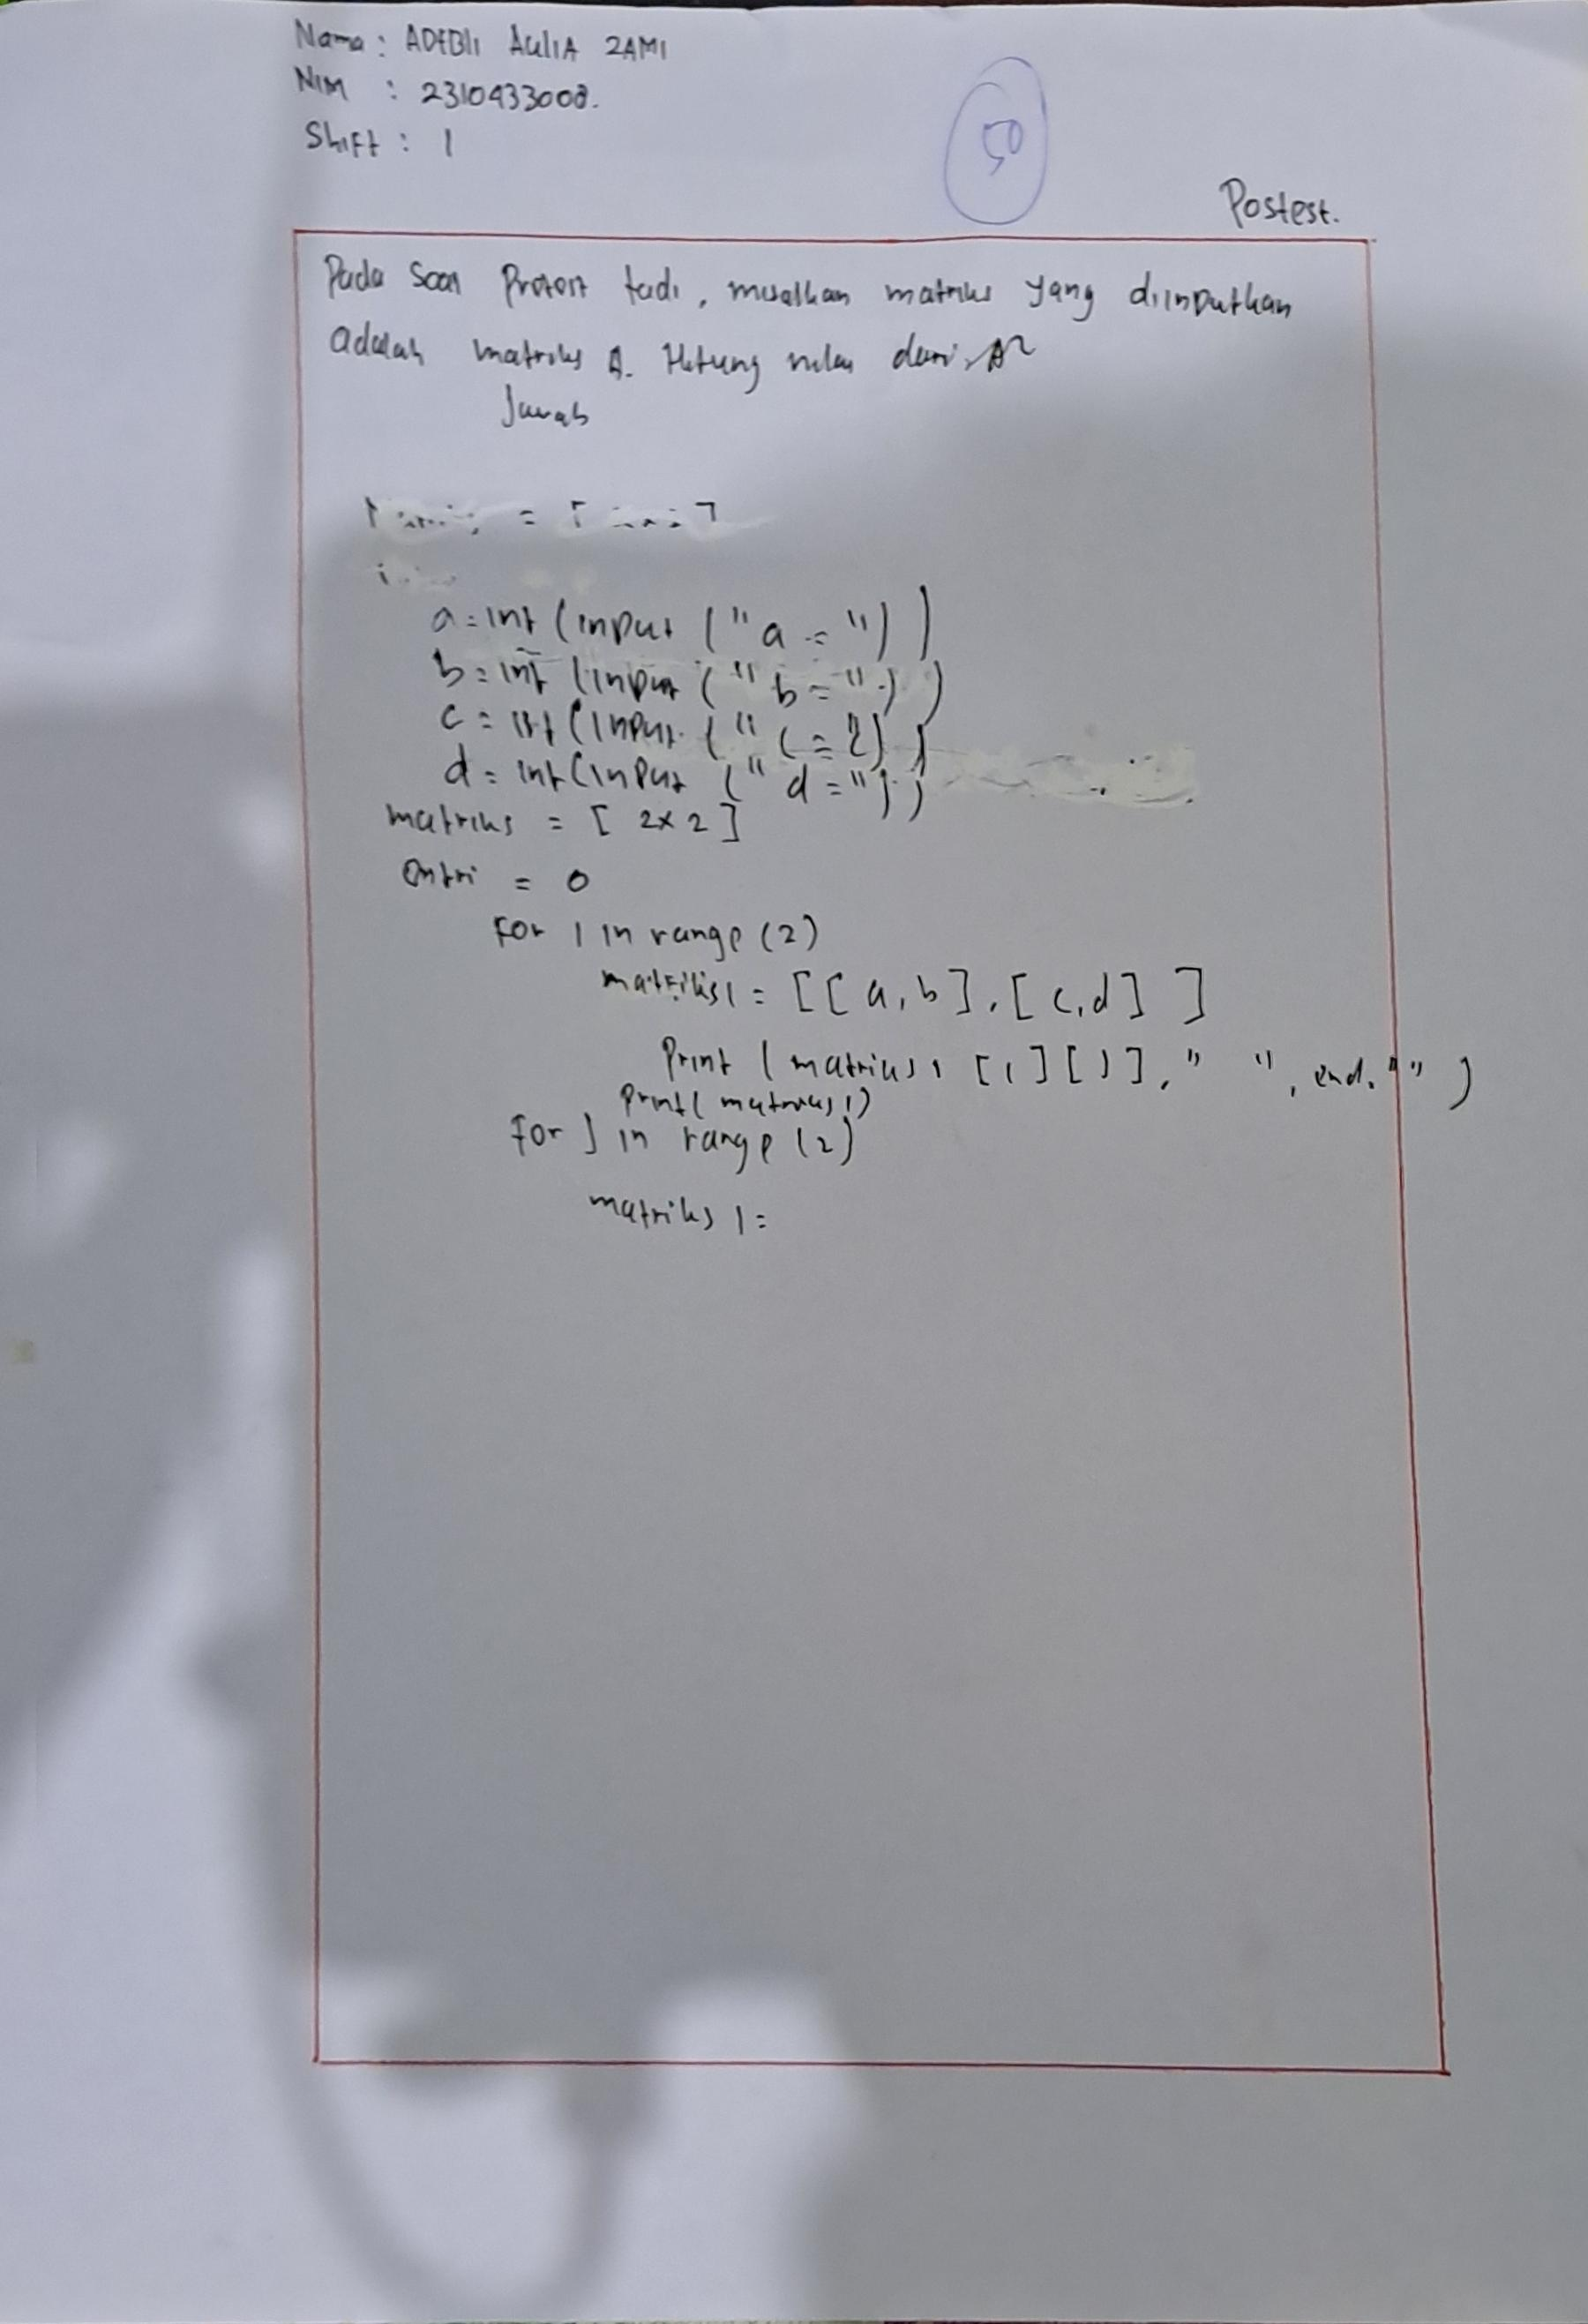 Nama : ADFBli AuliA ZAMI
NIM : 2310433008.
Shift : 1
50
Postest.
Pada Soal Pretest tadi, misalkan matriks yang diinputkan
adalah matriks A. Hitung nilai dari A²
Jawab
a = int (input ("a = "))
b = int (input ("b = "))
c = int (input (" c = "))
d = int (input (" d = "))
matriks = [ 2x2 ]
Entri = 0
For i in range (2)
matriks1 = [[a, b], [c,d] ]
Print (matriks1 [i][j], " ", end. "")
Print( matriks1)
For j in range (2)
matriks 1 =